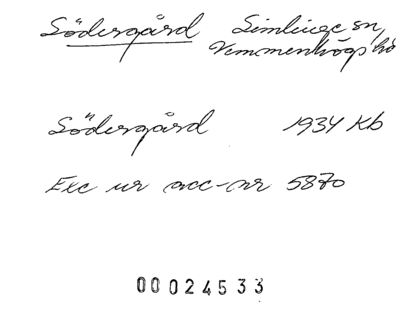 Södergård Simlinge sn,
Vemmenhögs hd
Södergård 1934 Kb
Exc ur acc-nr 5870
00024533